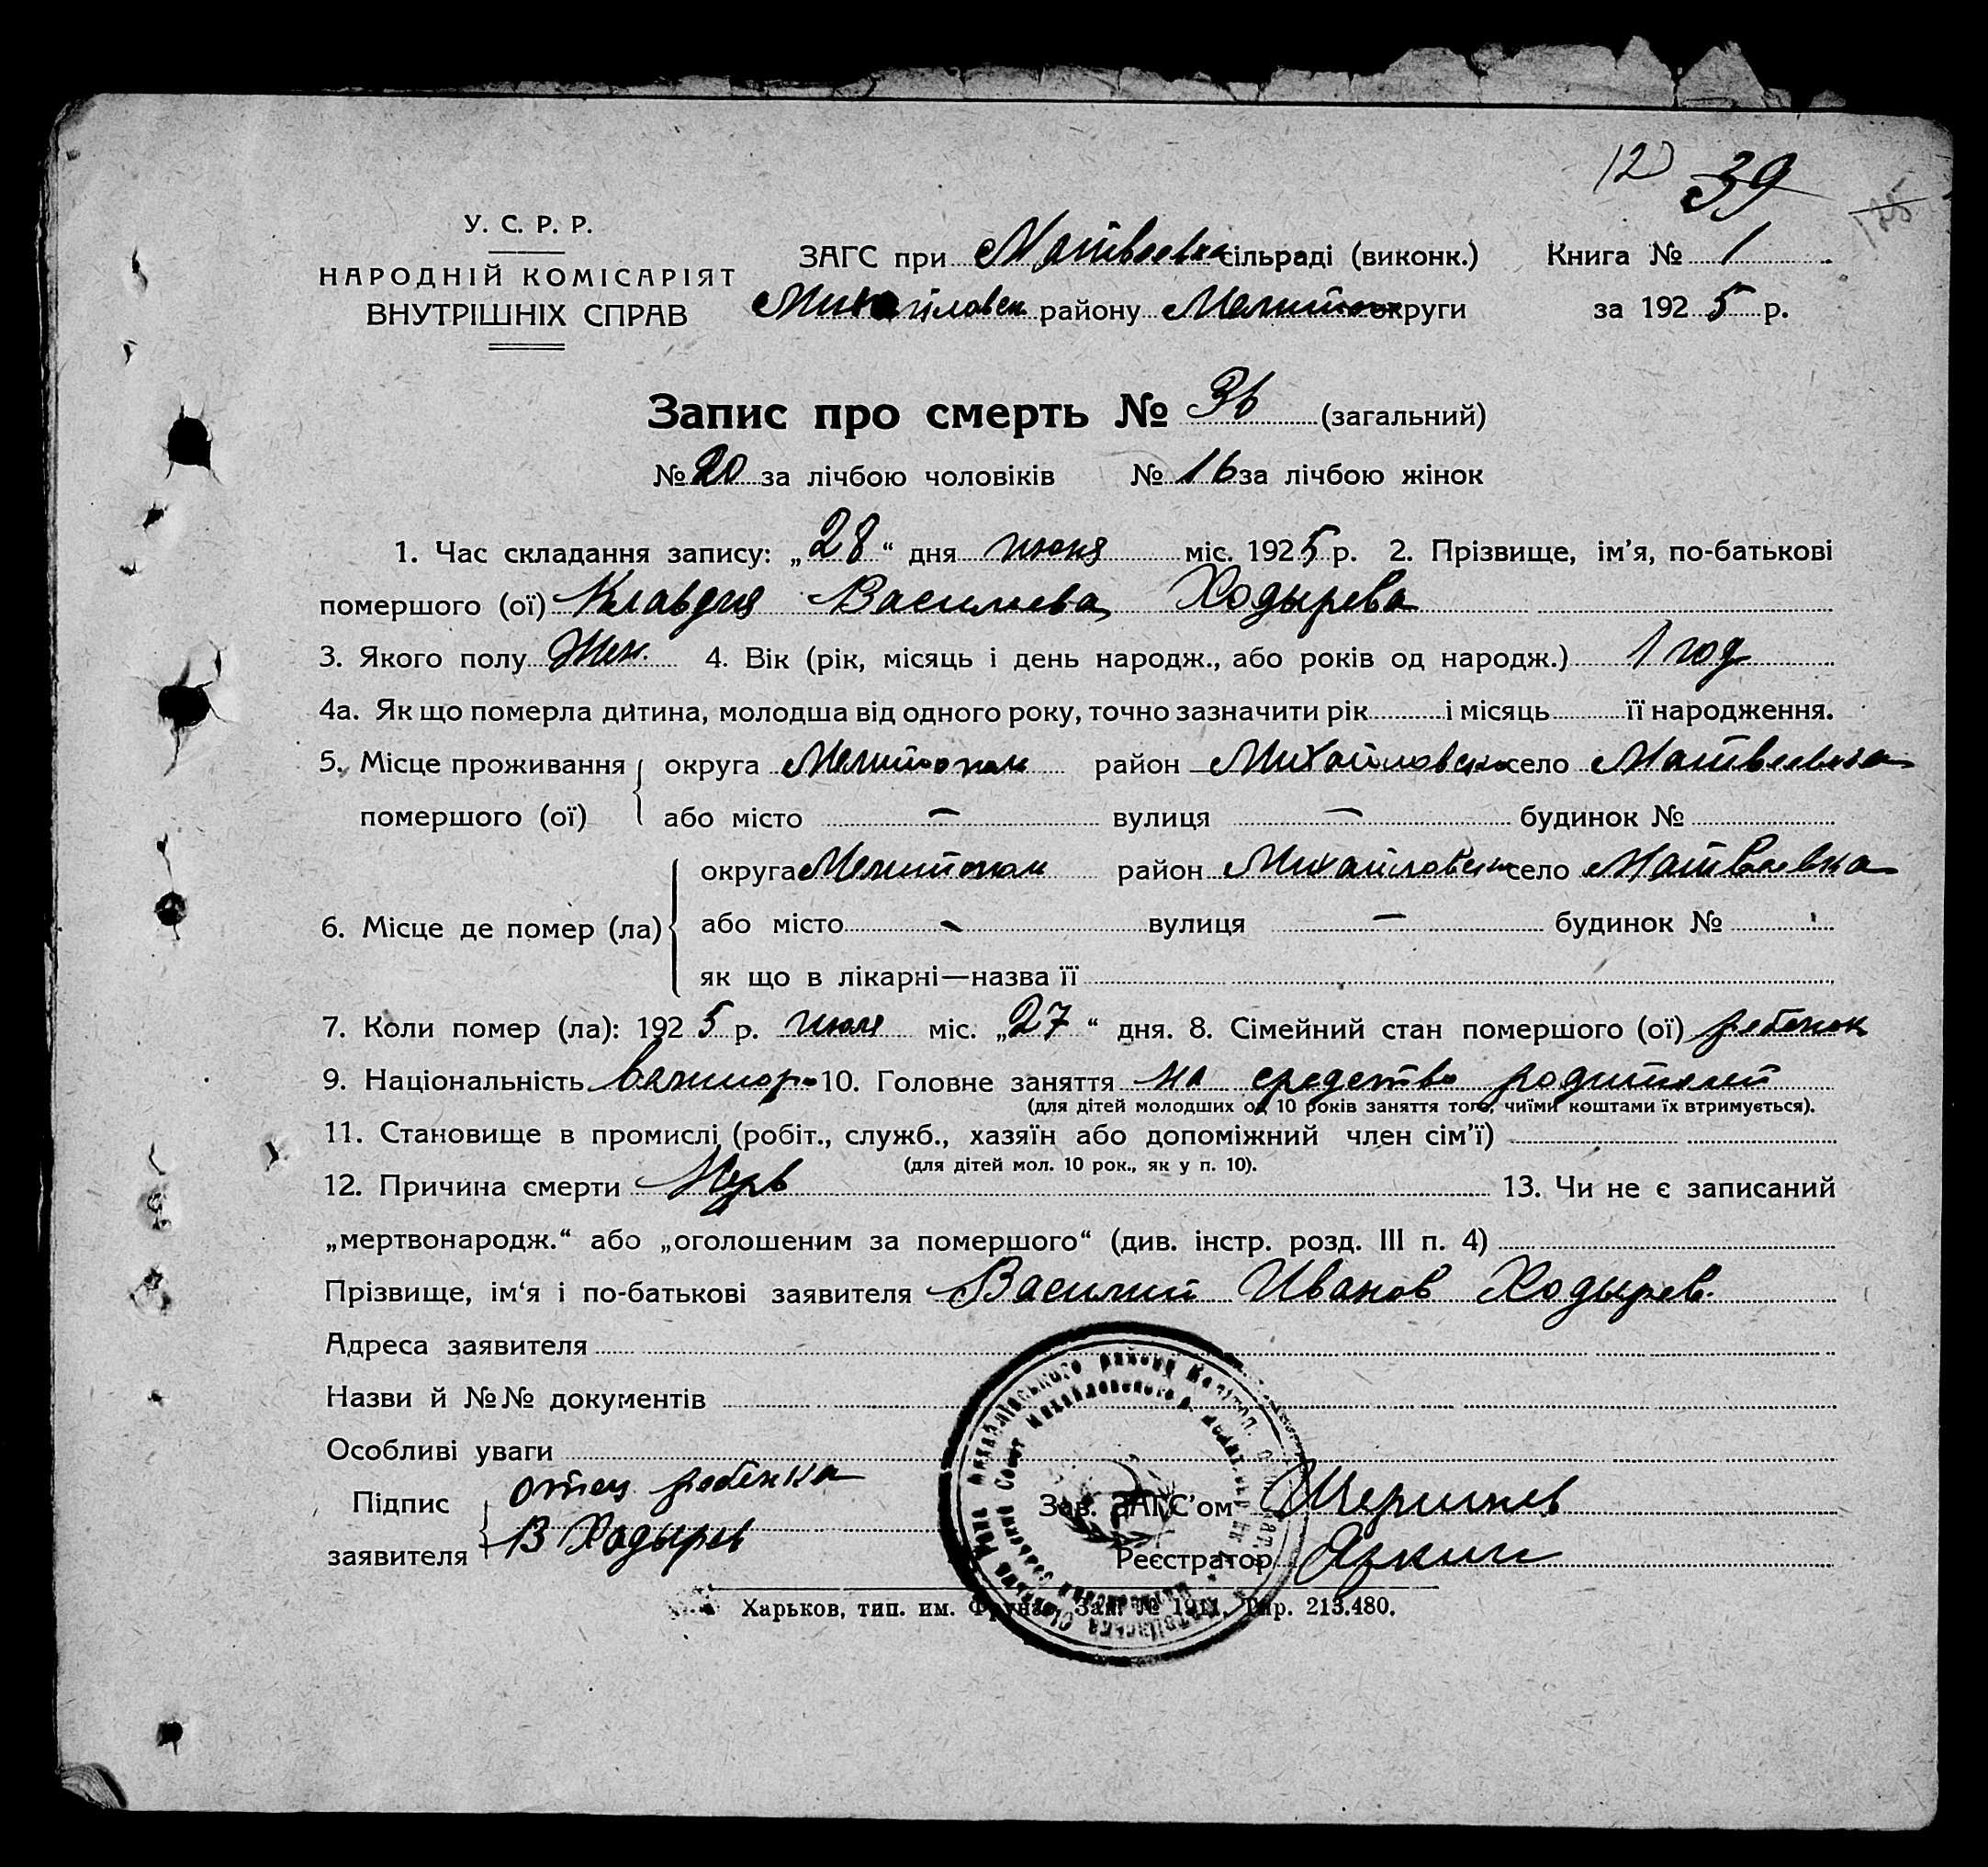 12 39 125
У. С. Р. Р.
НАРОДНІЙ КОМІСАРІЯТ
ВНУТРІШНІХ СПРАВ
ЗАГС при Матвеевка сільраді (виконк.) Книга № 1
Михайловск району Мелитоп округи за 1925 р.
Запис про смерть № 36 (загальний)
№ 20 за лічбою чоловіків № 16 за лічбою жінок
1. Час складання запису: „28“ дня июня міс. 1925 р. 2. Прізвище, ім’я, по-батькові
помершого (ої) Клавдия Васильева Ходырева
3. Якого полу Жен. 4. Вік (рік, місяць і день народж., або років од народж.) 1 год
4а. Як що померла дитина, молодша від одного року, точно зазначити рік і місяць її народження.
5. Місце проживання помершого (ої) округа Мелитопол район Михайловск село Матвеевка
або місто — вулиця — будинок №
6. Місце де помер (ла) округа Мелитопол район Михайловск село Матвеевка
або місто - вулиця — будинок №
як що в лікарні—назва її
7. Коли помер (ла): 1925 р. міс. „27“ дня. 8. Сімейний стан помершого (ої) ребенок
9. Національність великор 10. Головне заняття на средство родителей
(для дітей молодших од 10 років заняття того, чиїми коштами їх втримується).
11. Становище в промислі (робіт., служб., хазяїн або допоміжний член сім’ї)
(для дітей мол. 10 рок., як у п. 10).
12. Причина смерти 13. Чи не є записаний
„мертвонародж.“ або „оголошеним за помершого“ (див. інстр. розд. III п. 4)
Прізвище, ім‘я і по-батькові заявителя Василий Иванов Ходырев.
Адреса заявителя
Назви й №№ документів
Особливі уваги
Підпис заявителя отец ребенка
В Ходырев
Зав. ЗАГС’ом
Реєстратор
Харьков, тип. им. Фрунзе, Зак. № 1911. Тир. 213.480.